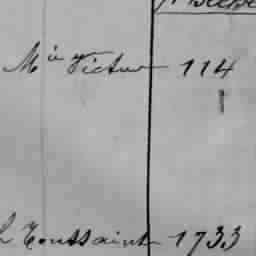 Mie Victor 114
Toussaint 1733